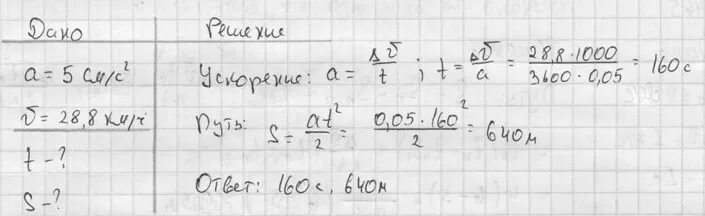 Дано
a = 5 см/с²
v = 28,8 км/ч
t - ?
S - ?
Решение
Ускорение: a = Δv/t ; t = Δv/a = 28,8·1000/3600·0,05 = 160 с
Путь: S = at²/2 = 0,05·160²/2 = 640 м
Ответ: 160 с, 640 м